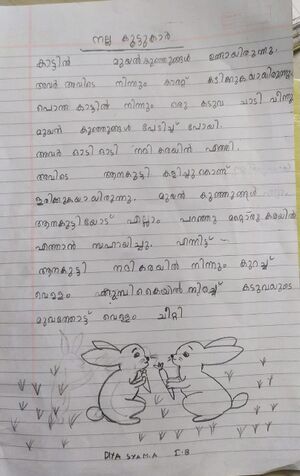 നല്ല കൂട്ടുകാർ
കാട്ടിൽ മുയൽകുഞ്ഞുങ്ങൾ ഉണ്ടായിരുന്നു.
അവർ അവിടെ നിന്നും കാരറ്റ് കടിക്കുകയായിരുന്നു.
പൊന്ത കാട്ടിൽ നിന്നും ഒരു കടുവ ചാടി വീണു
മുയൽ കുഞ്ഞുങ്ങൾ പേടിച്ച് പോയി.
അവർ ഓടി ഓടി നദികരയിൽ എത്തി.
അവിടെ ആനകുട്ടി കളിച്ചുകൊണ്ട്
ഇരിക്കുകയായിരുന്നു. മുയൽ കുഞ്ഞുങ്ങൾ
ആനകുട്ടിയോട് എല്ലാം പറഞ്ഞു മറ്റൊരു കരയിൽ
എത്താൻ സഹായിച്ചു. എന്നിട്ട്
ആനകുട്ടി നദികരയിൽ നിന്നും കുറച്ച്
വെള്ളം തുമ്പികൈയിൽ നിറച്ച് കടുവയുടെ
മുഖത്തോട്ട് വെള്ളം ചീറ്റി
DIYA SYAM.A I-B